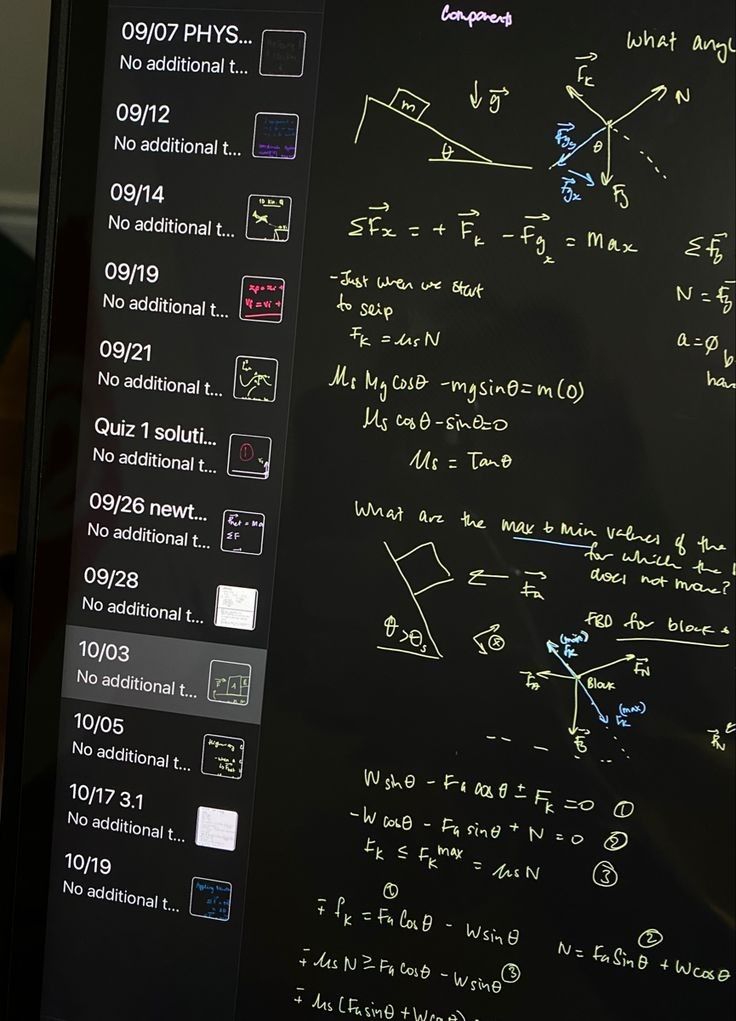 09/07 PHYS...
No additional t...
09/12
No additional t...
09/14
No additional t...
09/19
No additional t...
09/21
No additional t...
Quiz 1 soluti...
No additional t...
09/26 newt...
No additional t...
09/28
No additional t...
10/03
No additional t...
10/05
No additional t...
10/17 3.1
No additional t...
10/19
No additional t...
Components
What angl
m
g
θ
Fk
N
Fgy
θ
Fgx
Fg
ΣFx = + Fk - Fgx = max
ΣF
- Just when we start
to slip
Fk = μsN
N = F
a = ∅
μs mg cosθ - mg sinθ = m(0)
μs cosθ - sinθ = 0
μs = Tanθ
What are the max & min values of the
for which the
does not move?
Fa
θ > θs
FBD for block
(min)
Fk
FN
FA
Block
(max)
Fk
Fg
FN
W sinθ - Fa cosθ ± Fk = 0 ①
-W cosθ - Fa sinθ + N = 0 ②
Fk ≤ Fk max = μsN ③
①
∓ fk = Fa cosθ - W sinθ
②
N = Fa sinθ + W cosθ
∓ μsN ≥ Fa cosθ - W sinθ ③
∓ μs (Fa sinθ + W cosθ)